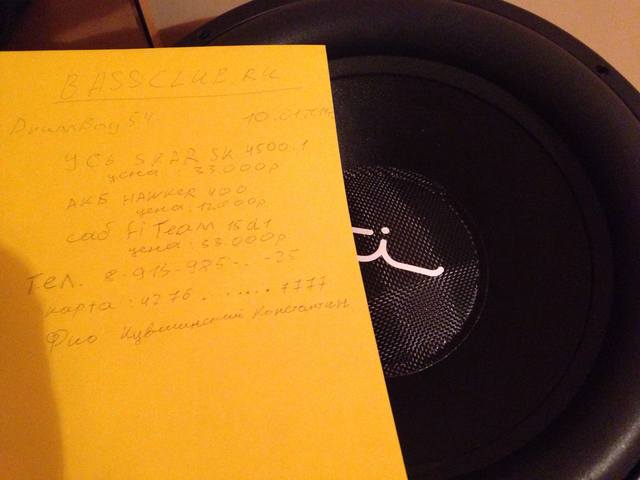 BASSCLUB.RU
DrumBoy54 10.01.2014
УСБ SKAR SK 4500.1
цена: 33.000р
АКБ HAWKER 400
цена: 12.000р
саб Fi Team 15d1
цена: 33.000р
Тел. 8-915-985-..-25
карта: 4276 . ..... 7777
Фио Кувшинский Константин
Fi